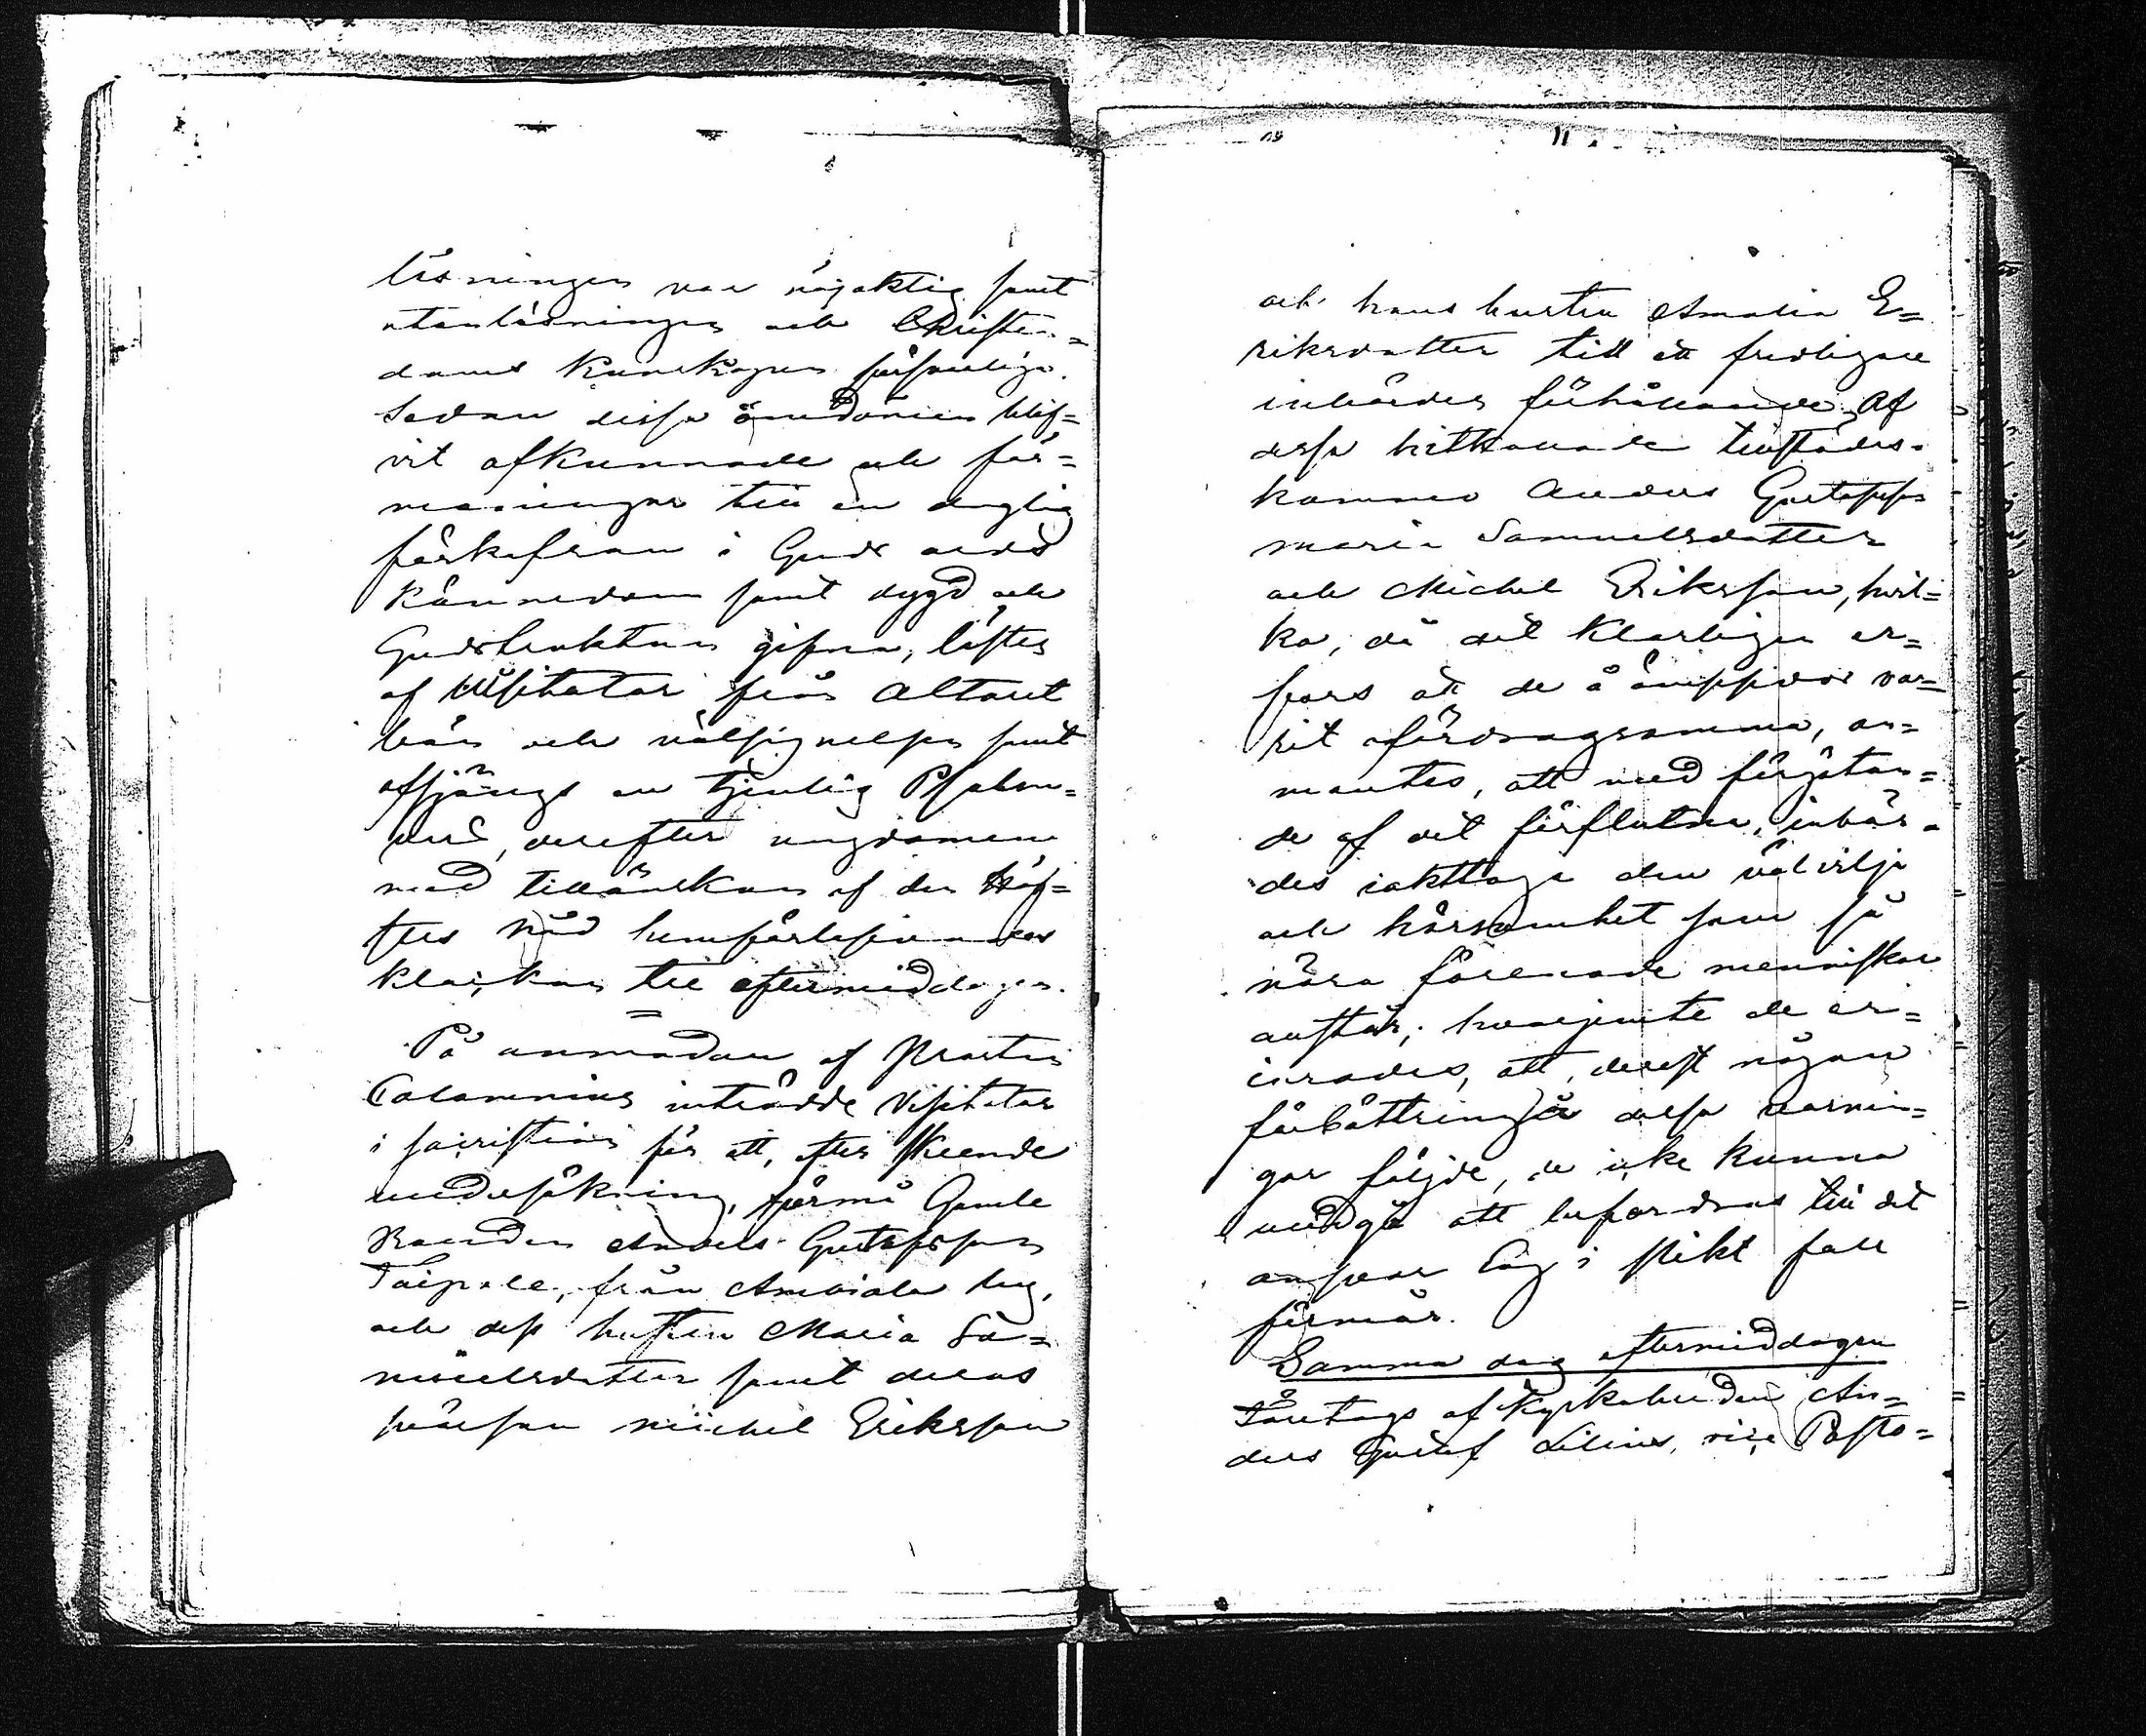 läsningen var nöjaktig samt
utanläsningen och Christen=
doms kunskapen försvarliga.
Sedan dessa omdömen blif=
vit afkunnade och för=
maningar till en daglig
förkofran i Guds ords
kännedom samt dygd och
Gudsfruktan gifna, lästes
af Visitator från Altaret
bön och välsignelsen samt
afsjöngs en tjenlig Psalm=
vers, derefter ungdomen
med tillönskan af den Hög=
stes nåd hemförlofvades
klockan tre eftermiddagen.
På anmodan af Prosten
Calamnius inträdde Visitator
i sacristian för att, efter skeende
undersökning, förmå Gamle
Bonden Anders Gustafsson
Taipale, från Ambiala by,
och dess hustru Maria Sa=
muelsdotter samt deras
svärson Michel Eriksson
och hans hustru Amalia E=
riksdotter till ett fredligare
inbördes förhållande. Af
dessa hitkallade tillstädes=
kommo Anders Gustafsson
Maria Samuelsdotter
och Michel Eriksson, hvil=
ka, då det klarligen er=
fors att de å ömse sidor va=
rit ofördragsamma, an=
mantes, att med förgätan=
de af det förflutna, inbör=
des iakttaga den välvilja
och hörsamhet som så
nära förenade menniskor
anstår; hvarjemte de er=
inrades, att, derest någon
förbättring å dessa varnin=
gar följde, de icke kunna
undgå att befordras till det
ansvar Lag i slikt fall
förmår.
Samma dag eftermiddagen
Företogs af Kyrkoherden An=
ders Gustaf Lilius, vice Pasto=